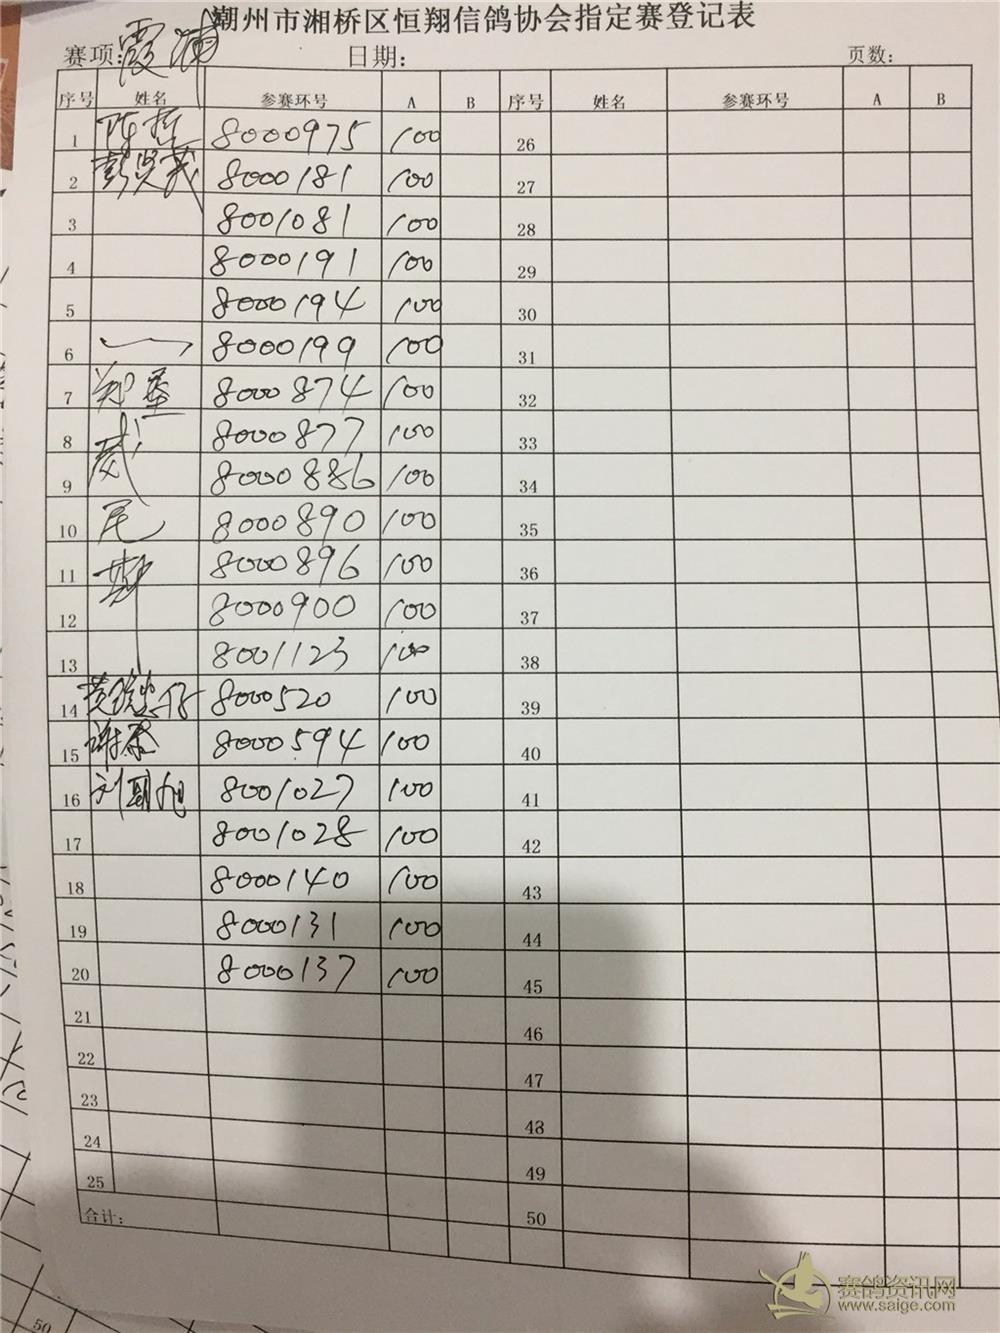 潮州市湘桥区恒翔信鸽协会指定赛登记表
赛项:霞浦 日期: 页数:
序号 姓名 参赛环号 A B 序号 姓名 参赛环号 A B
1 陈哲 8000975 100 26
2 8000181 100 27
3 8001081 100 28
4 8000191 100 29
5 8000194 100 30
6 8000199 100 31
7 8000874 100 32
8 威 8000877 100 33
9 8000886 100 34
10 尼 8000890 100 35
11 斯 8000896 100 36
12 8000900 100 37
13 8001123 100 38
14 8000520 100 39
15 8000594 100 40
16 8001027 100 41
17 8001028 100 42
18 8000140 100 43
19 8000131 100 44
20 8000137 100 45
21 46
22 47
23 48
24 49
25 50
合计:
赛鸽资讯网
www.saige.com
50